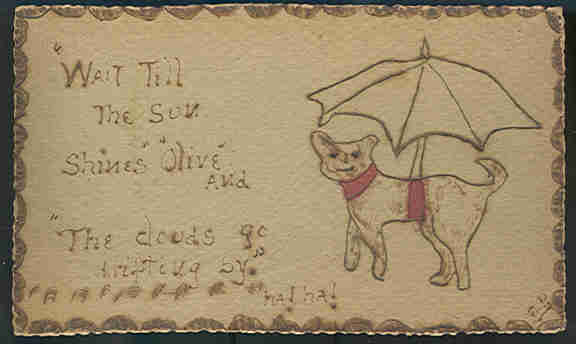 "WAIT Till
The SuN
Shines" "Olive"
AND
"The clouds go
drifting by."
"ha! ha!